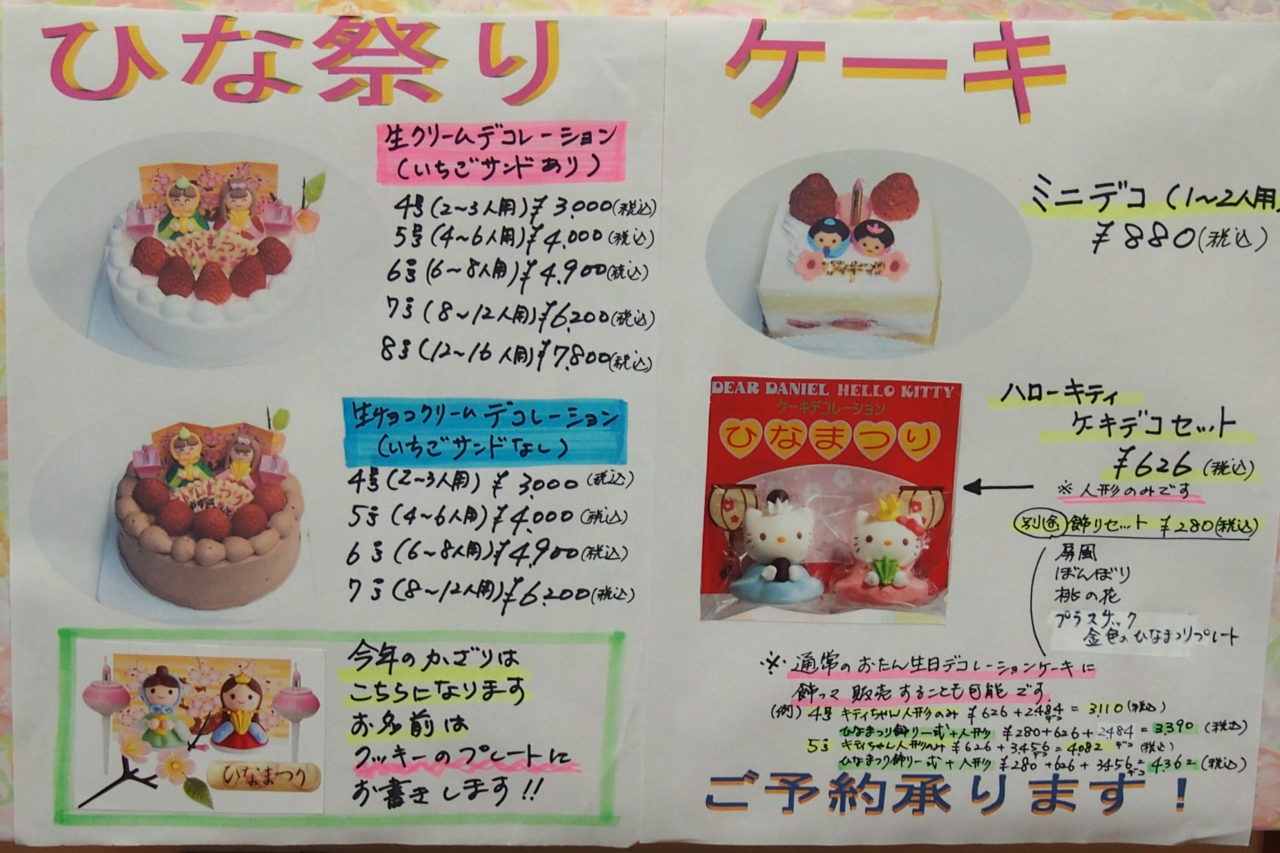 ひな祭り ケーキ
生クリームデコレーション
(いちごサンドあり)
4号(2~3人用)¥3,000(税込)
5号(4~6人用)¥4,000(税込)
6号(6~8人用)¥4,900(税込)
7号(8~12人用)¥6,200(税込)
8号(12~16人用)¥7,800(税込)
生チョコクリームデコレーション
(いちごサンドなし)
4号(2~3人用)¥3,000(税込)
5号(4~6人用)¥4,000(税込)
6号(6~8人用)¥4,900(税込)
7号(8~12人用)¥6,200(税込)
ひなまつり
今年のかざりは
こちらになります
お名前は
クッキーのプレートに
お書きします!!
ミニデコ(1~2人用)
¥880(税込)
DEAR DANIEL HELLO KITTY
ケーキデコレーション
ひなまつり
ハローキティ
ケキデコセット
¥626(税込)
※人形のみです
別途 飾りセット ¥280(税込)
屏風
ぼんぼり
桃の花
プラスチック
金色のひなまつりプレート
※通常のおたん生日デコレーションケーキに
飾って販売することも可能です。
(例)4号 キティちゃん人形のみ ¥626+2484=3110(税込)
ひなまつり飾り一式+人形 ¥280+626+2484=3390(税込)
5号 キティちゃん人形のみ ¥626+3456=4082(税込)
ひなまつり飾り一式+人形 ¥280+626+3456=4362(税込)
ご予約承ります!